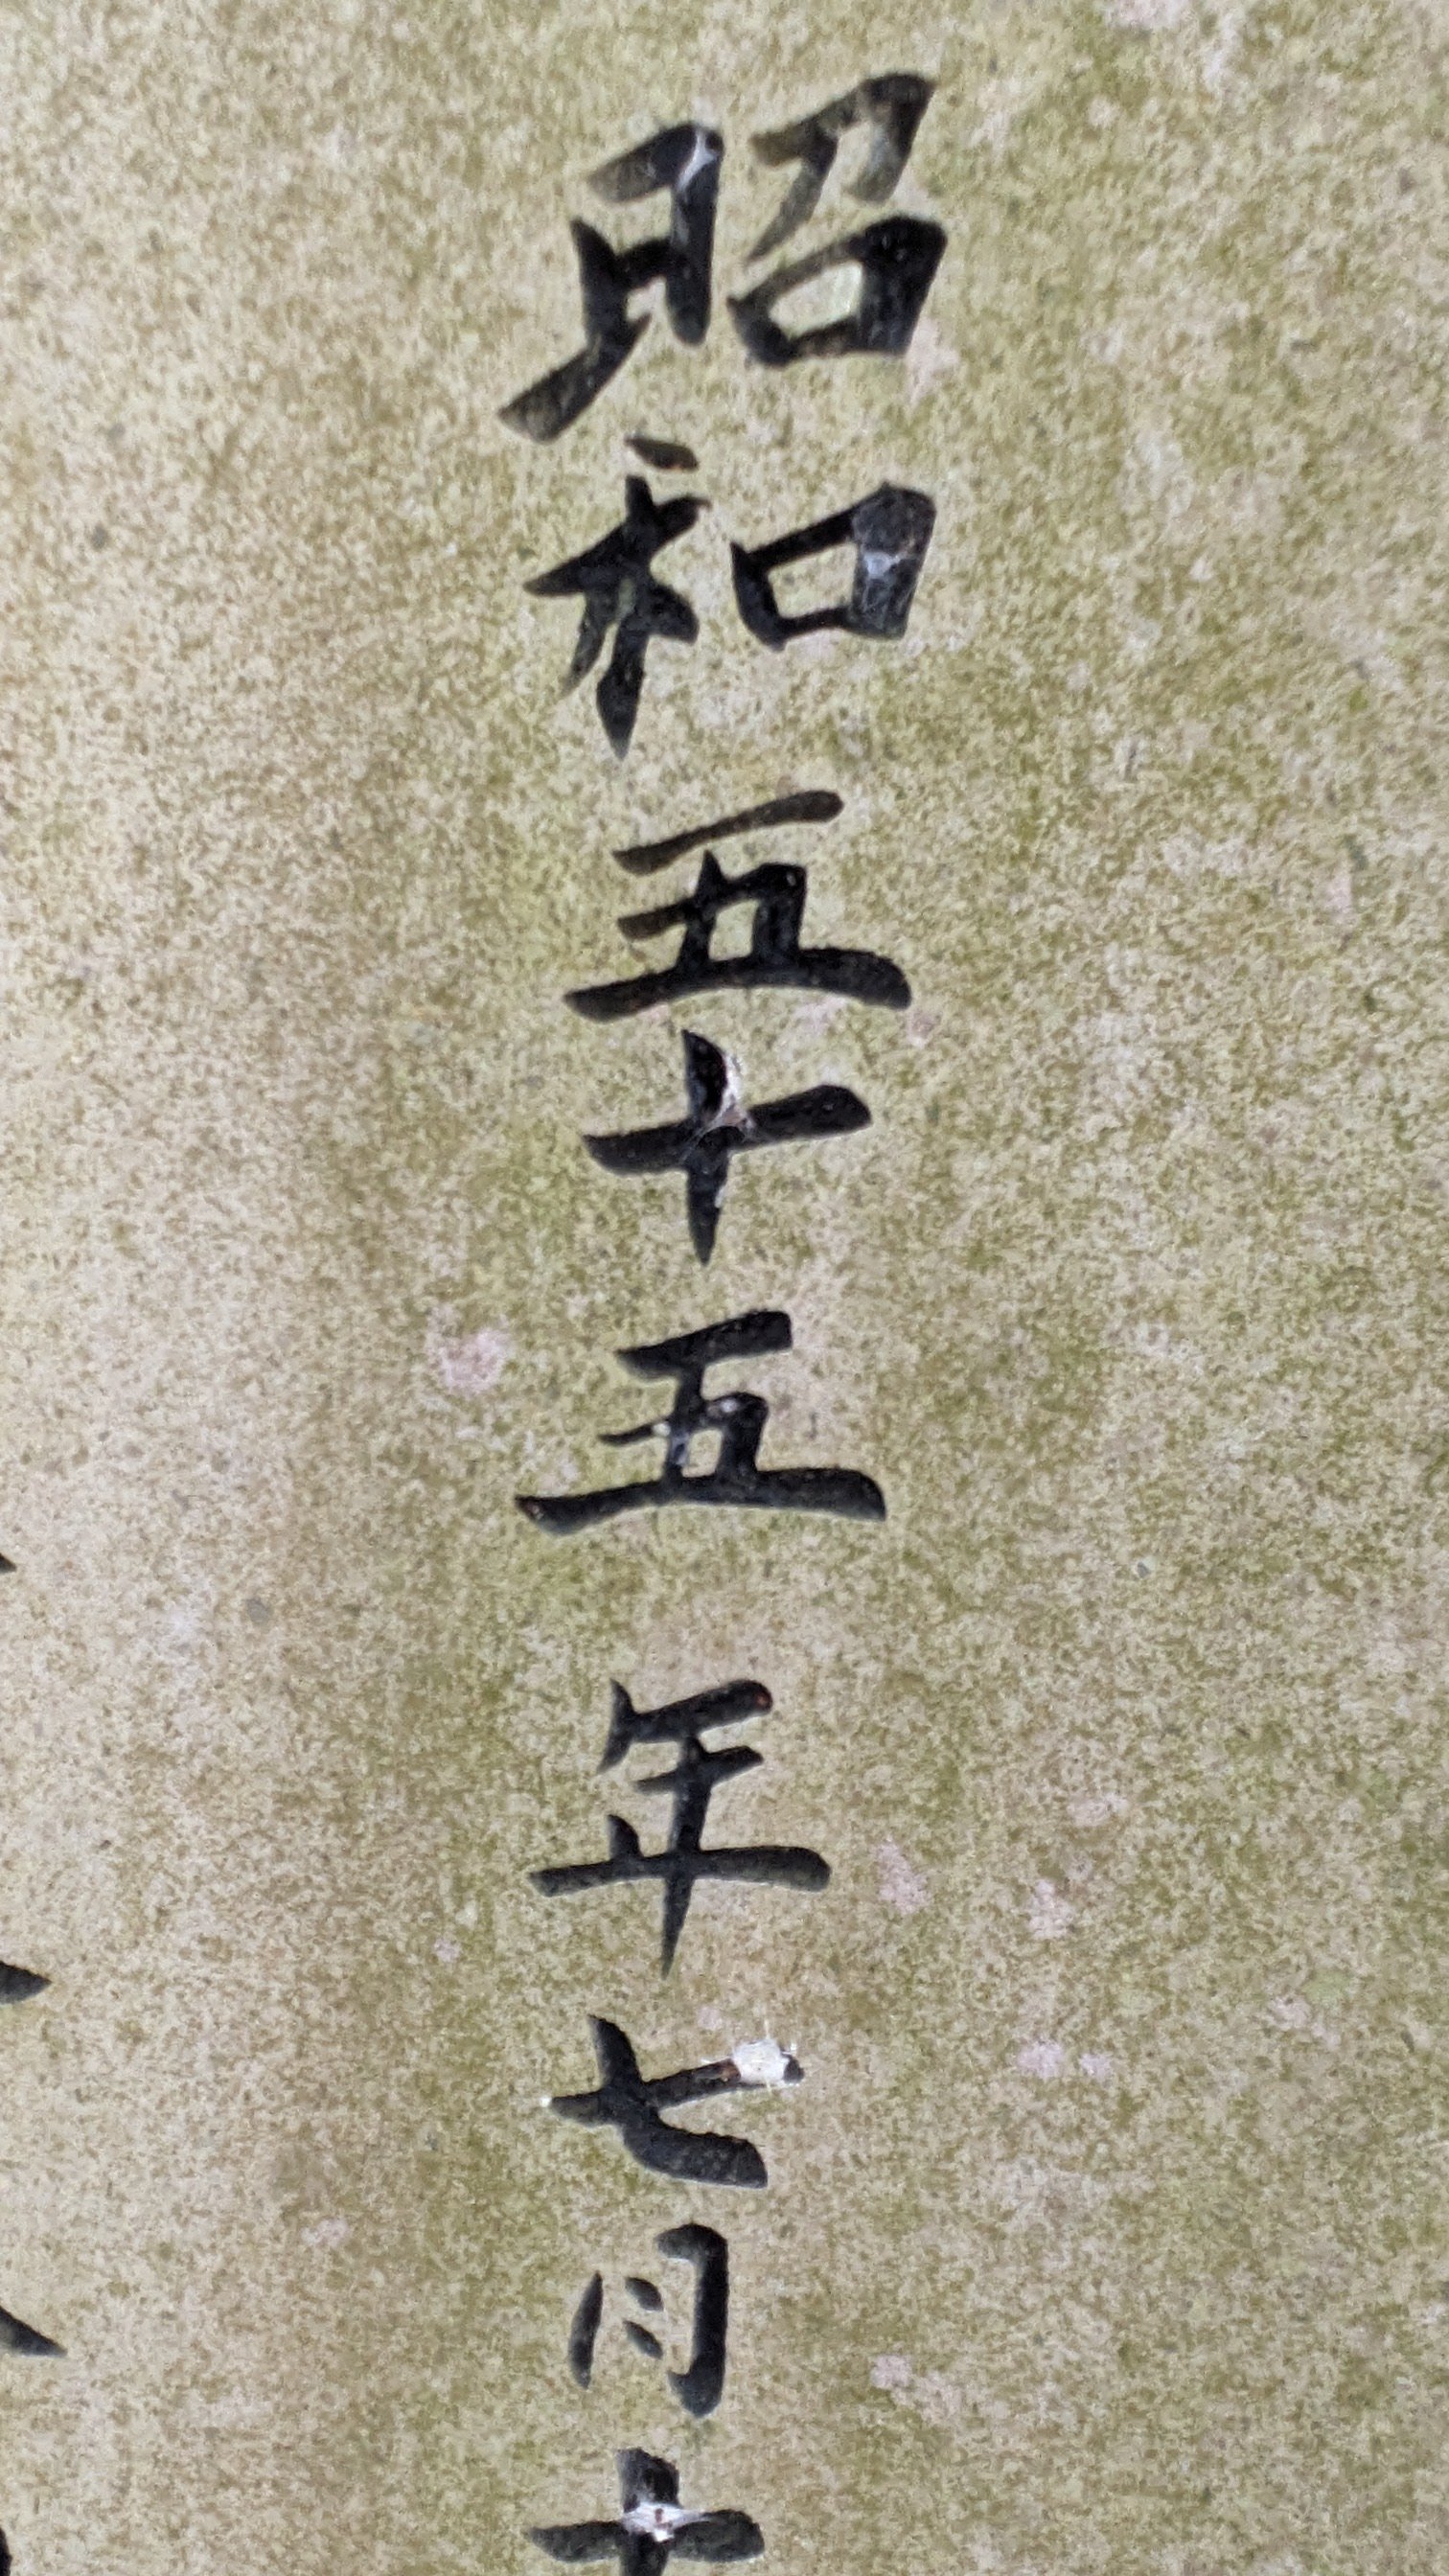 昭和五十五年七月十